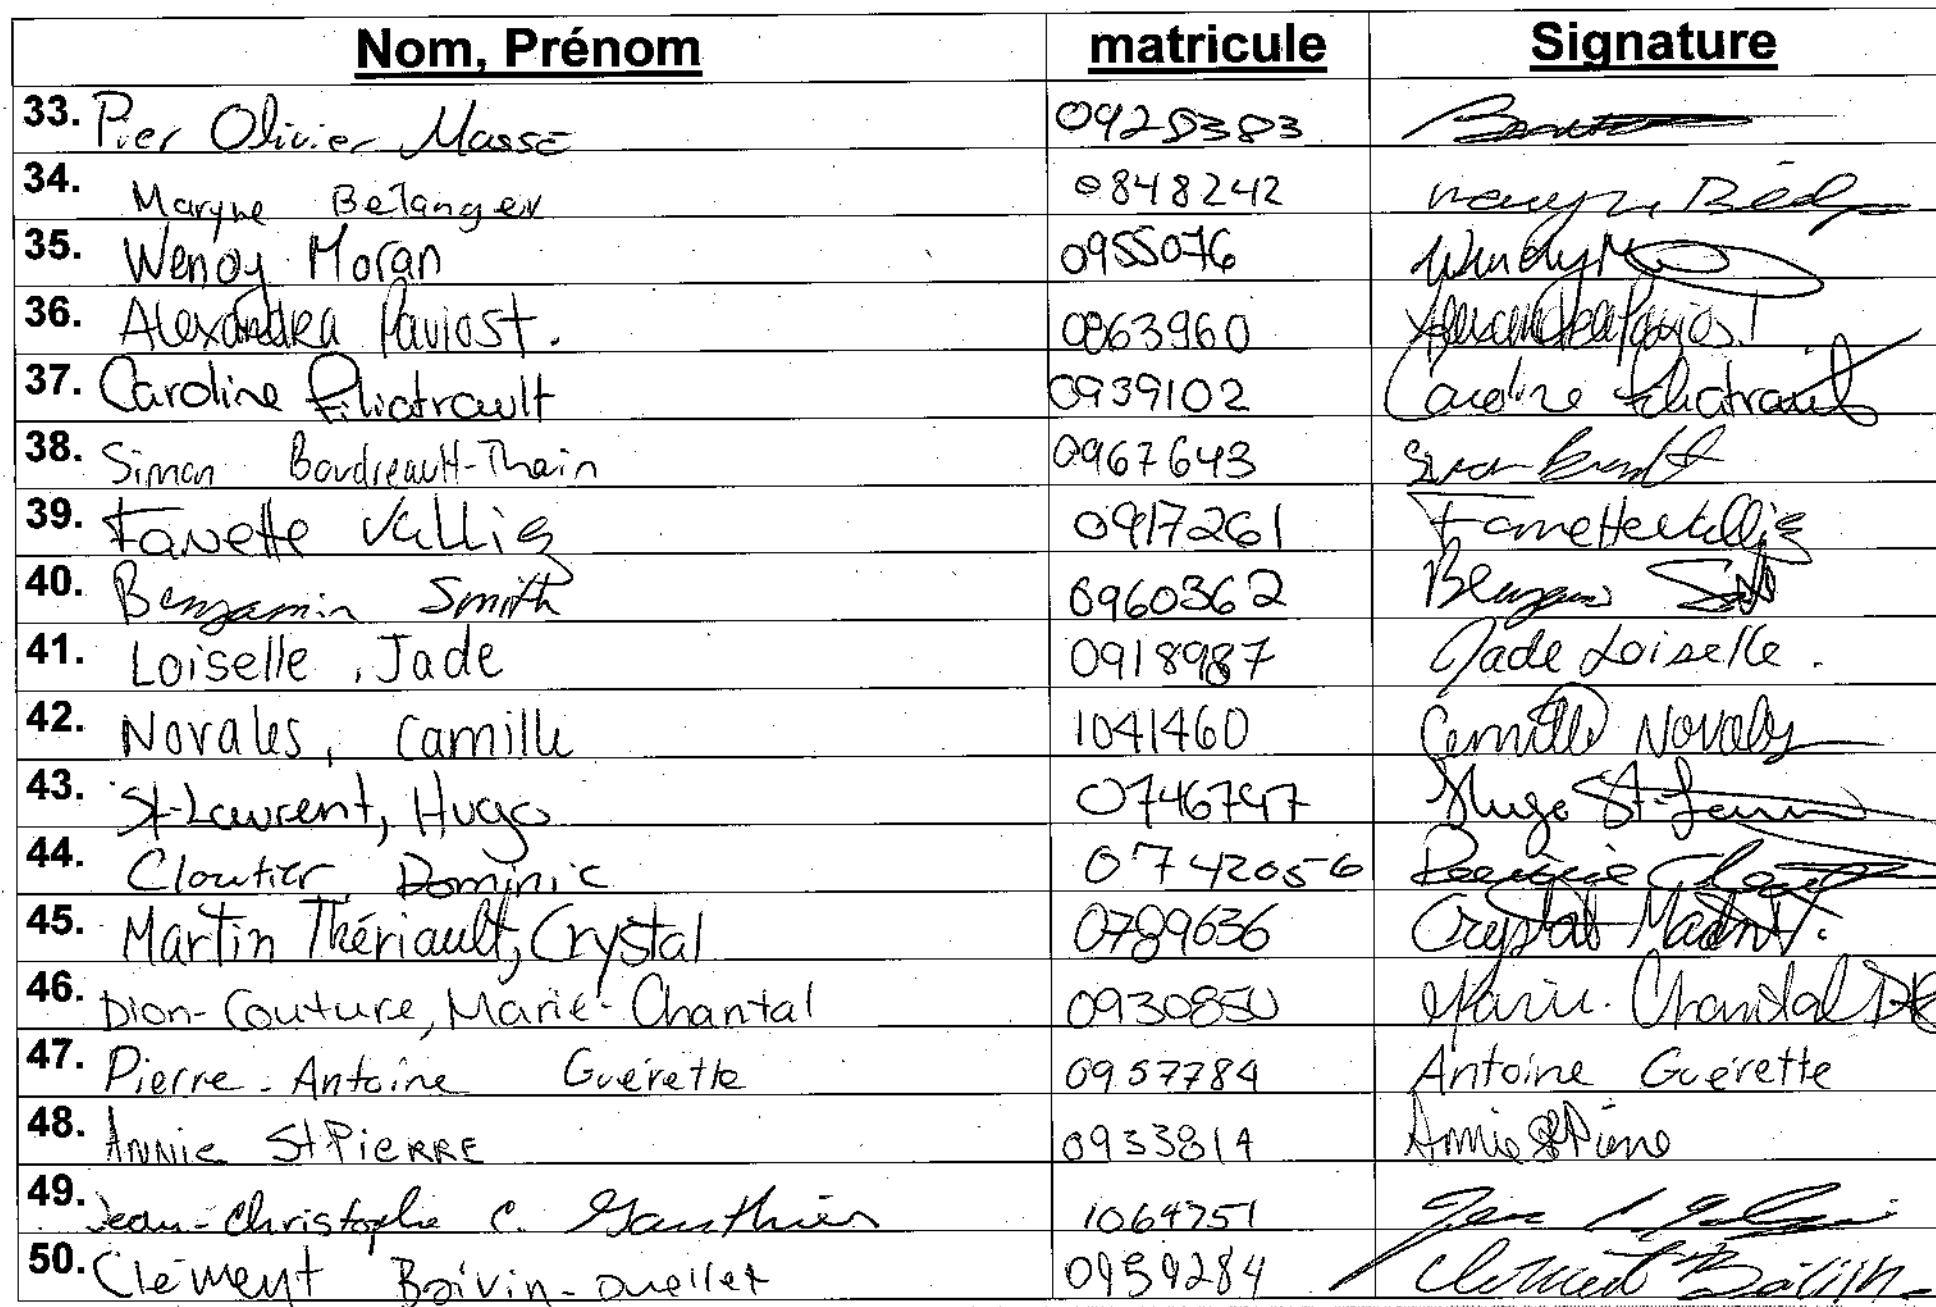 Nom, Prénom matricule Signature
33. Pier Olivier Masse 0928383
34. Maryne Bélanger 0848242
35. Wendy Moran 0955076 Wendy M
36. Alexandra Paviost. 0863960 Alexandra Paviost
37. Caroline Filiatrault 0939102 Caroline Filiatrault
38. Simon Boudreault-Thain 0967643
39. Fanette Vallig 0917261 Fanette Vallig
40. Benjamin Smith 0960362
41. Loiselle, Jade 0918987 Jade Loiselle.
42. Novales, Camille 1041460 Camille Novales
43. St-Laurent, Hugo 0746747 Hugo St-Laurent
44. Cloutier, Dominic 0742056
45. Martin Thériault, Crystal 0789636 Crystal Martin T.
46. Dion-Couture, Marie-Chantal 0930850 Marie-Chantal DC
47. Pierre-Antoine Guérette 0957784 Antoine Guérette
48. Annie St Pierre 0933814 Annie St Pierre
49. Jean-Christophe C. Gauthier 1064751
50. Clément Boivin-Ouellet 0959284